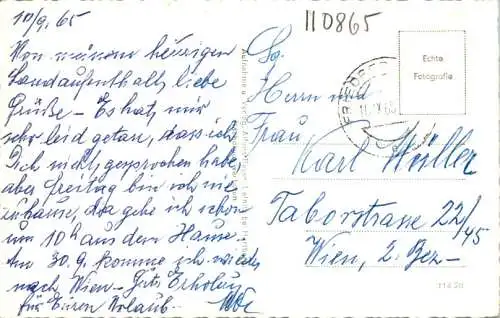 10/9.65
Von meinem heurigen
Landaufenthalt liebe
Grüße – Es hat mir
sehr leid getan, dass ich
Dich nicht gesprochen habe,
aber freitag bin ich nie
zuhause, da gehe ich schon
um 10h aus dem Hause.
Am 30.9. komme ich wieder
nach Wien – Gute Erholung
für Euren Urlaub.
110865
Echte
Fotografie
Sg.
Herrn und
Frau
Karl Müller
Taborstrasse 22/45
Wien, 2. Bez –